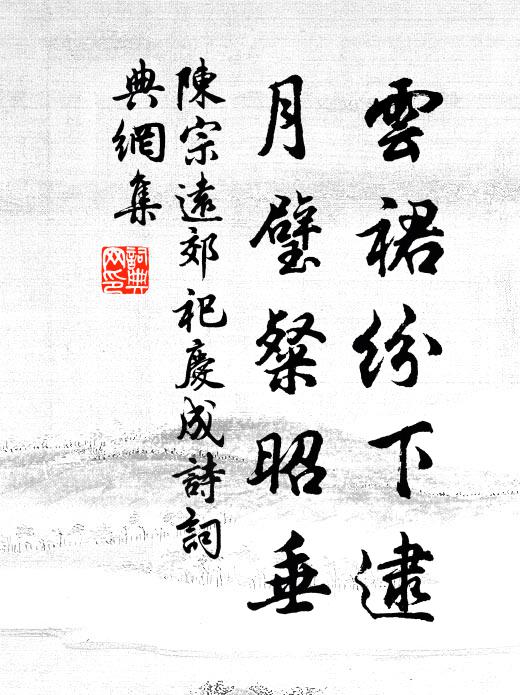 雲裙紛下逮
月璧粲昭垂
陳宗遠郊祀慶成詩詞
典網集
詞典网印